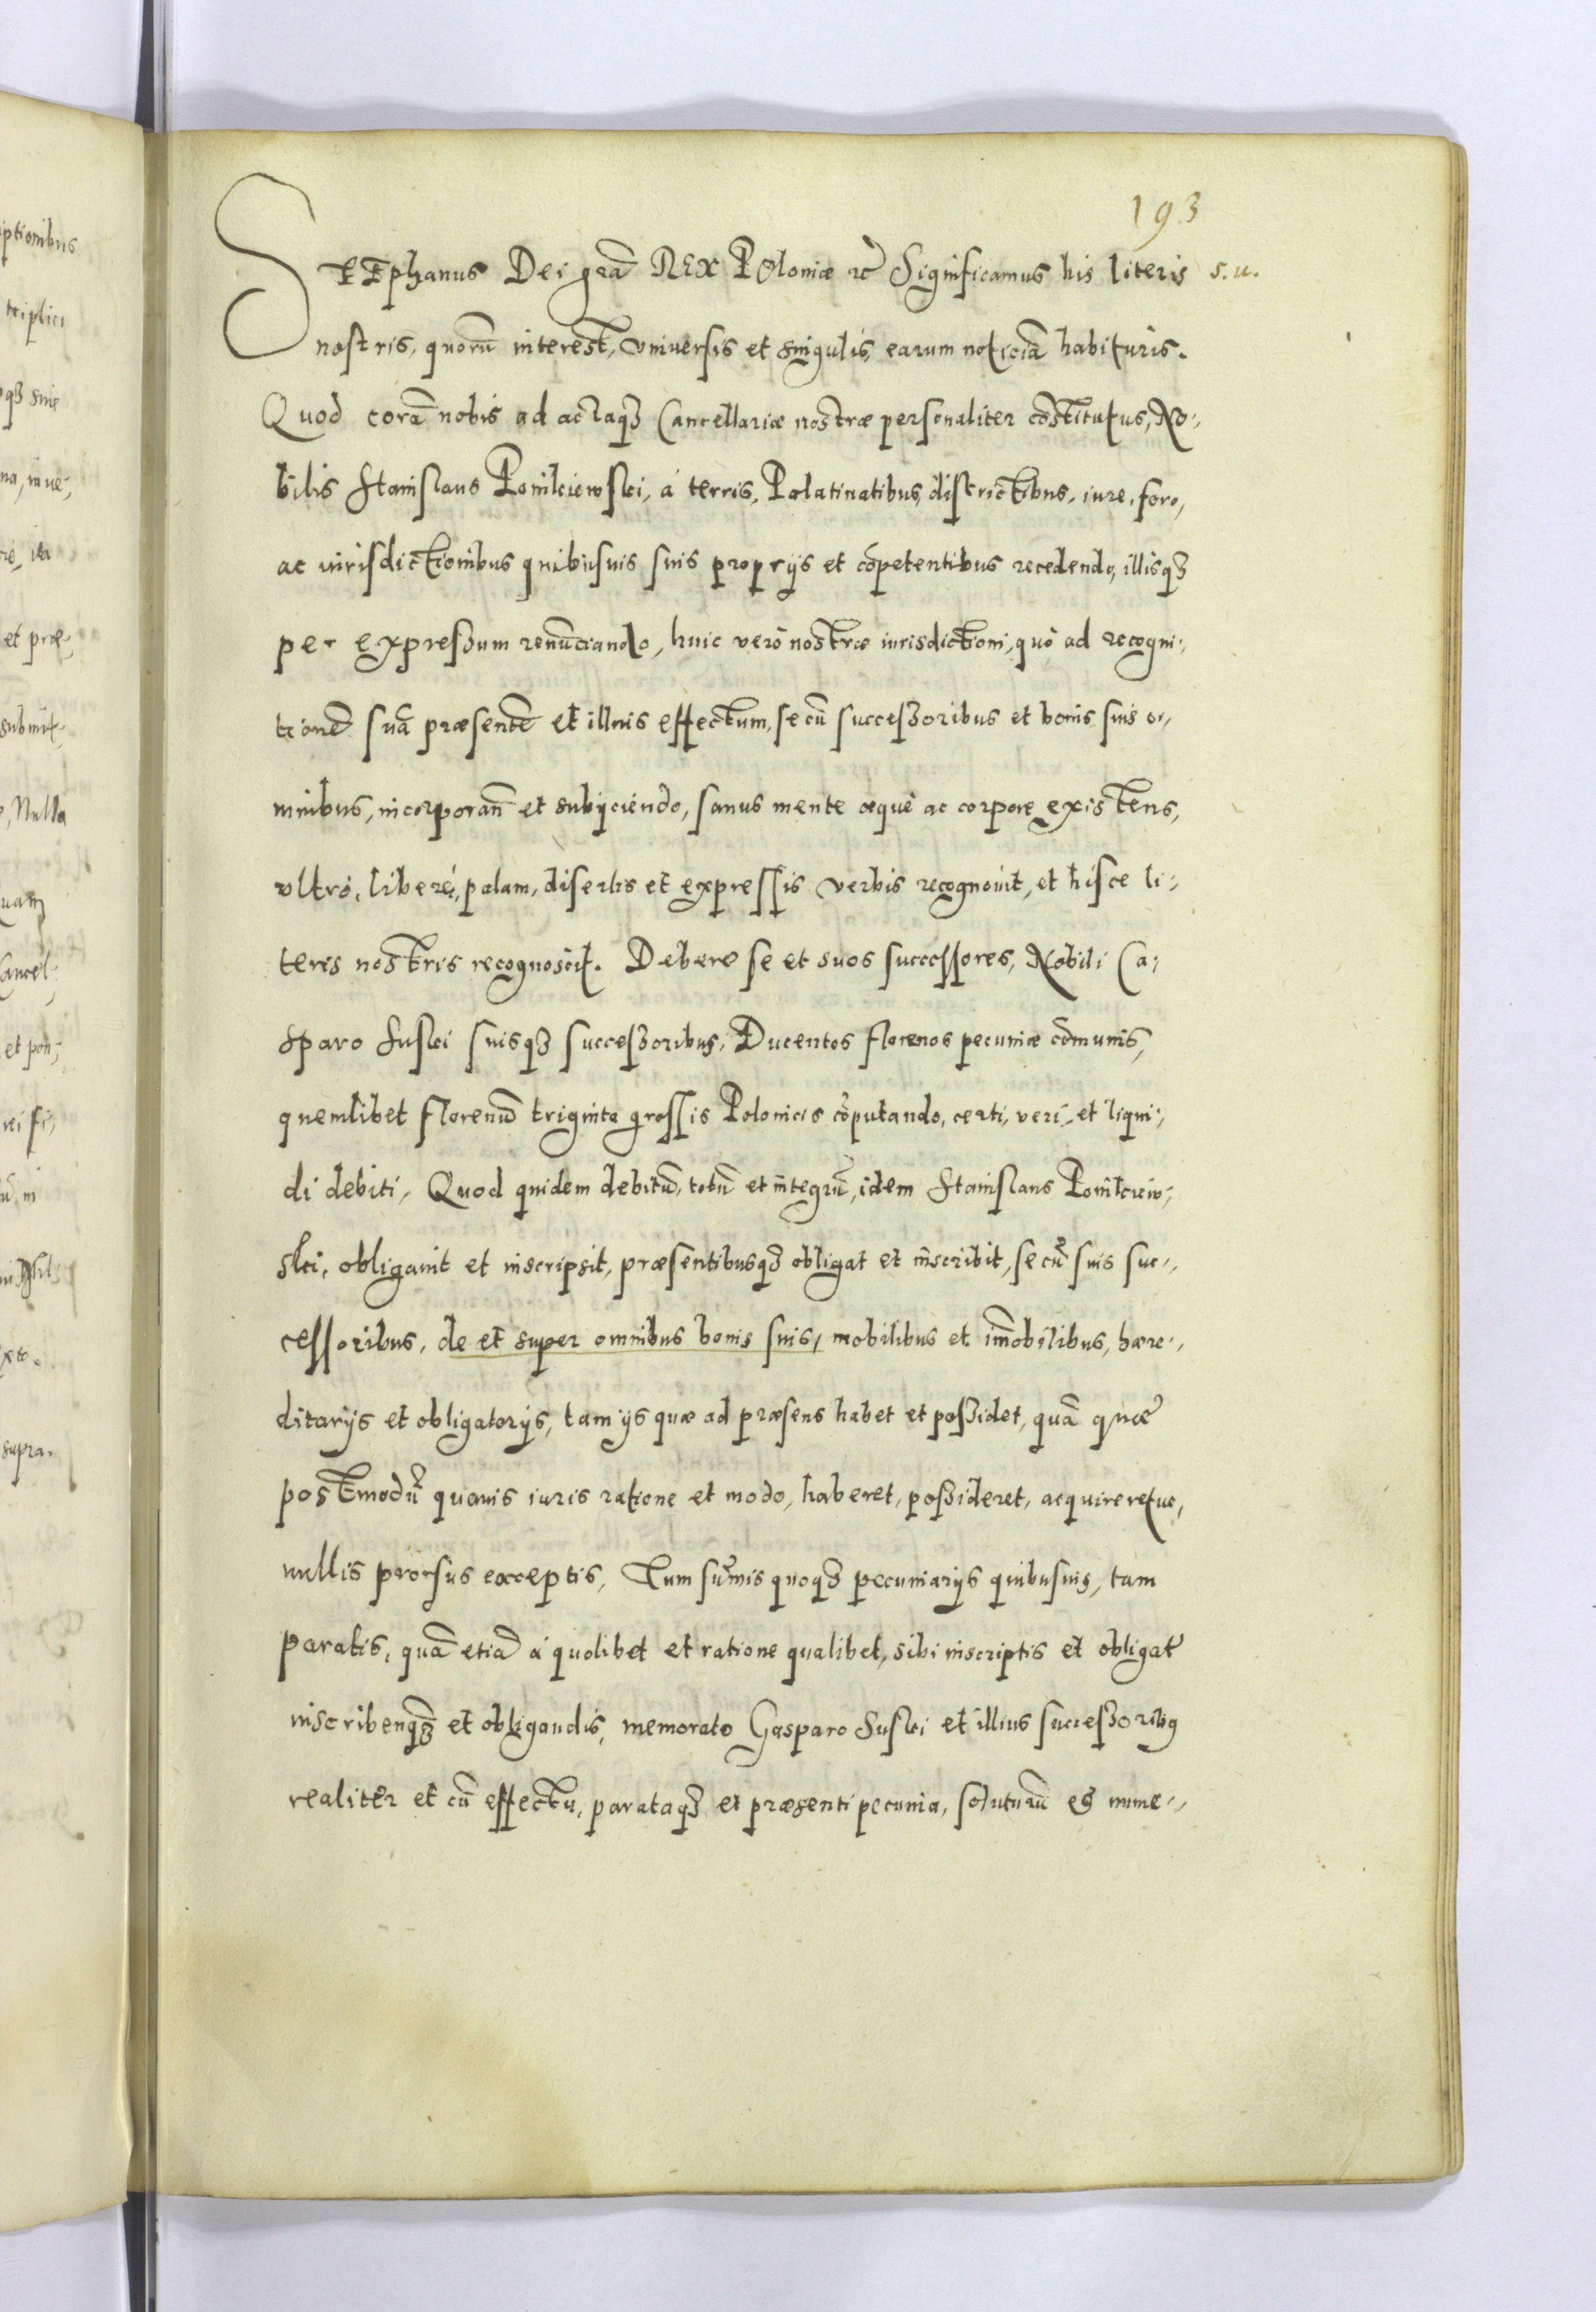 193
STEphanus Dei grã REX POloniæ rc̃ Significamus his literis s.u.
nostris, quorũ interest, vniuersis et singulis, earum noticiã habituris.
Quod corã nobis ad actaqꝫ Cancellariæ nostræ personaliter cõstitutus, No-,
bilis Stanislaus Ponikiewski, à terris, Palatinatibus, districtibus, iure, foro,
ac iurisdictionibus quibusuis suis proprijs et cõpetentibus recedendo, illisqꝫ
per expressum renũciando, huic verò nostræ iurisdictioni, quò ad recogni-,
tionẽ suã præsentẽ et illius effectum, se cũ successoribus et bonis suis o-,
mnibus, incorporan̄ et subijciendo, sanus mente æquè ac corpore existens,
vltrò, liberè, palam, disertis et expressis verbis recognouit, et hisce li-,
teris nostris recognoscit. Debere se et suos successores, Nobili Ca-,
sparo Suski suisqꝫ successoribus, Ducentos florenos pecuniæ cõmunis,
quemlibet florenũ triginta grossis Polonicis cõputando, certi, veri, et liqui-,
di debiti, Quod quidem debitũ, totũ et integrũ, idem Stanislaus Ponikiew-,
ski, obligauit et inscripsit, præsentibusqꝫ obligat et inscribit, se cũ suis suc-,
cessoribus, de et super omnibus bonis suis, mobilibus et im̃obilibus, hære-,
ditarijs et obligatorijs, tam ijs quæ ad præsens habet et possidet, quã quæ
postmodũ quouis iuris ratione et modo, haberet, possideret, acquireretue,
nullis prorsus exceptis, Tum sum̃is quoqꝫ pecuniarijs quibusuis, tam
paratis, quã etiã à quolibet et ratione qualibet, sibi inscriptis et obligat̃
inscribenqꝫ et obligandis, memorato Gasparo Suski et illius successoribꝫ
realiter et cũ effectu, parataqꝫ et præsenti pecunia, soluturũ eß nume-,